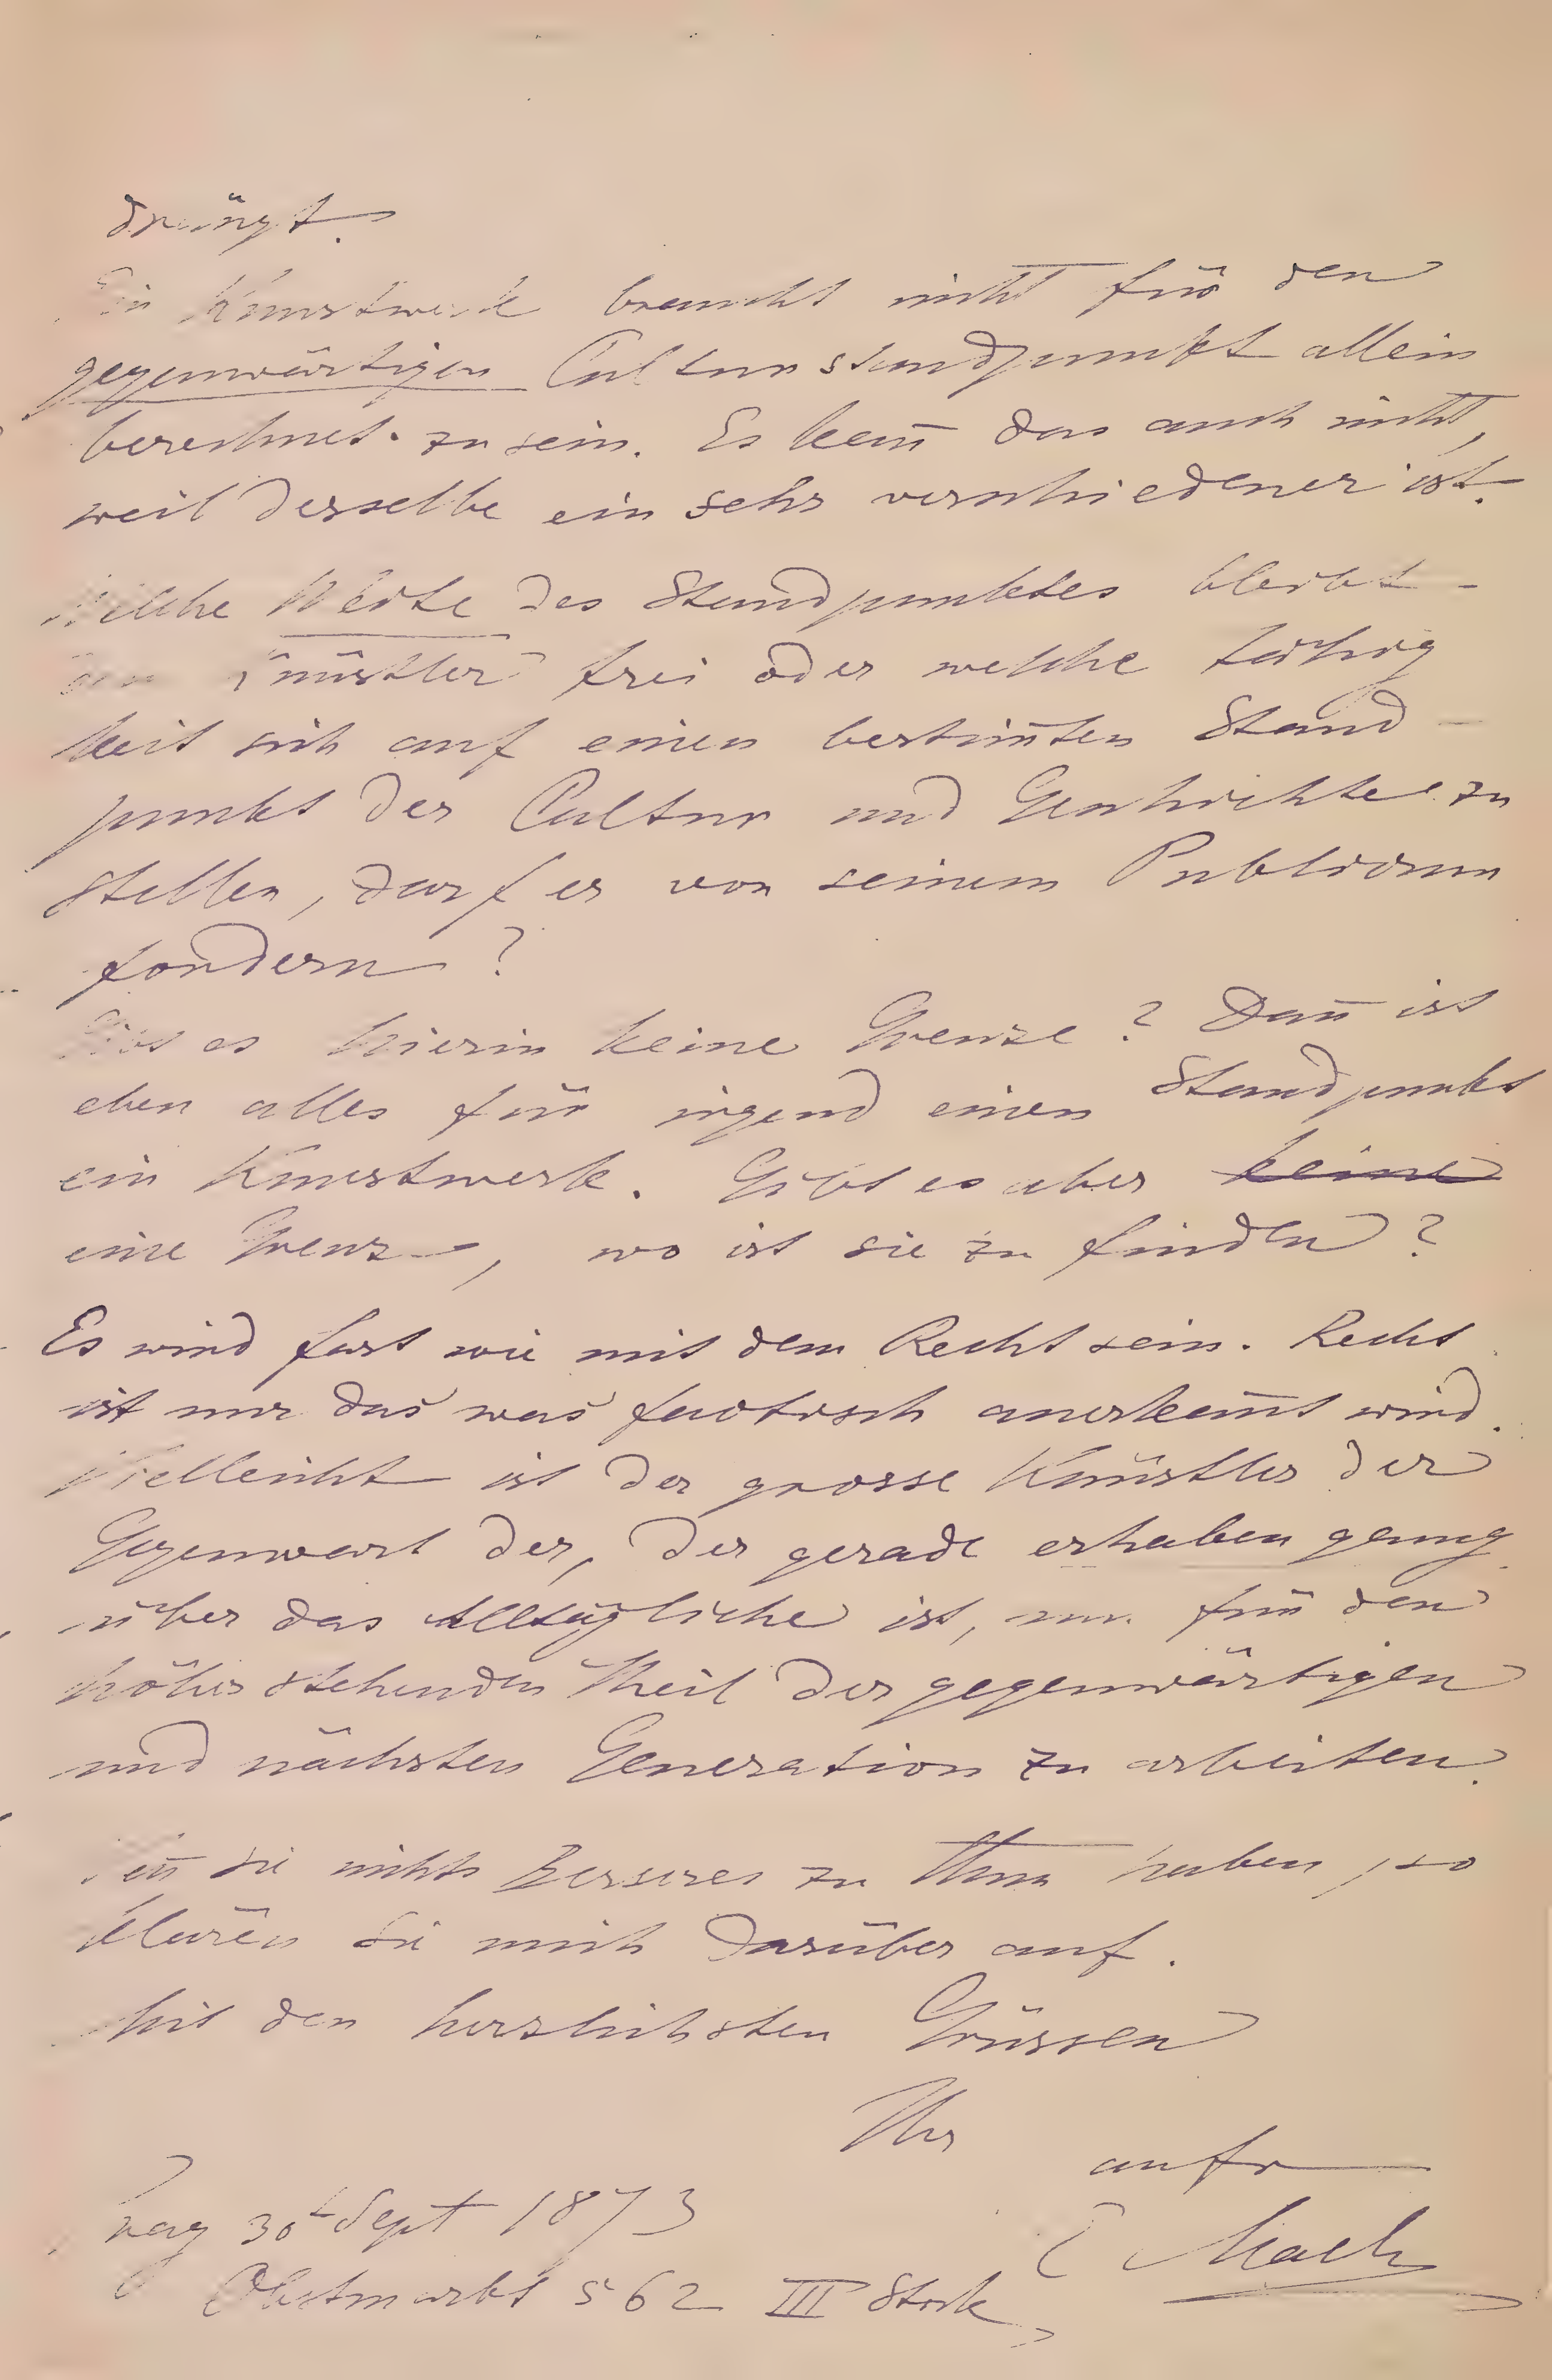 drängt.
Ein Kunstwerk braucht nicht für den
gegenwärtigen Culturstandpunkt allein
berechnet zu sein. Es kan̄ das auch nicht,
weil derselbe ein sehr verschiedener ist.
Welche Weite des Standpunktes bleibt
dem Künstler frei oder welche Fähig
keit sich auf einen bestim̄ten Stand-
punkt der Cultur und Geschichte zu
stellen, darf er von seinem Publicum
fordern?
Gibt es hierin keine Grenze? Dan̄ ist
eben alles für irgend einen Standpunkt
ein Kunstwerk. Gibt es aber keine
eine Grenze, wo ist sie zu finden?
Es wird fast wie mit dem Recht sein. Recht
ist nur das was factisch anerkan̄t wird.
Vielleicht ist der grosse Künstler der
Gegenwart der, der gerade erhaben genug
über das Alltägliche ist, um für den
höher stehenden Theil der gegenwärtigen
und nächsten Generation zu arbeiten.
Wen̄ Sie nichts Besseres zu thun haben, so
klären Sie mich darüber auf.
Mit den herzlichsten Grüssen
Ihr
aufr
Prag 30t Sept 1873
E Mach
Obstmarkt 562 III Stock